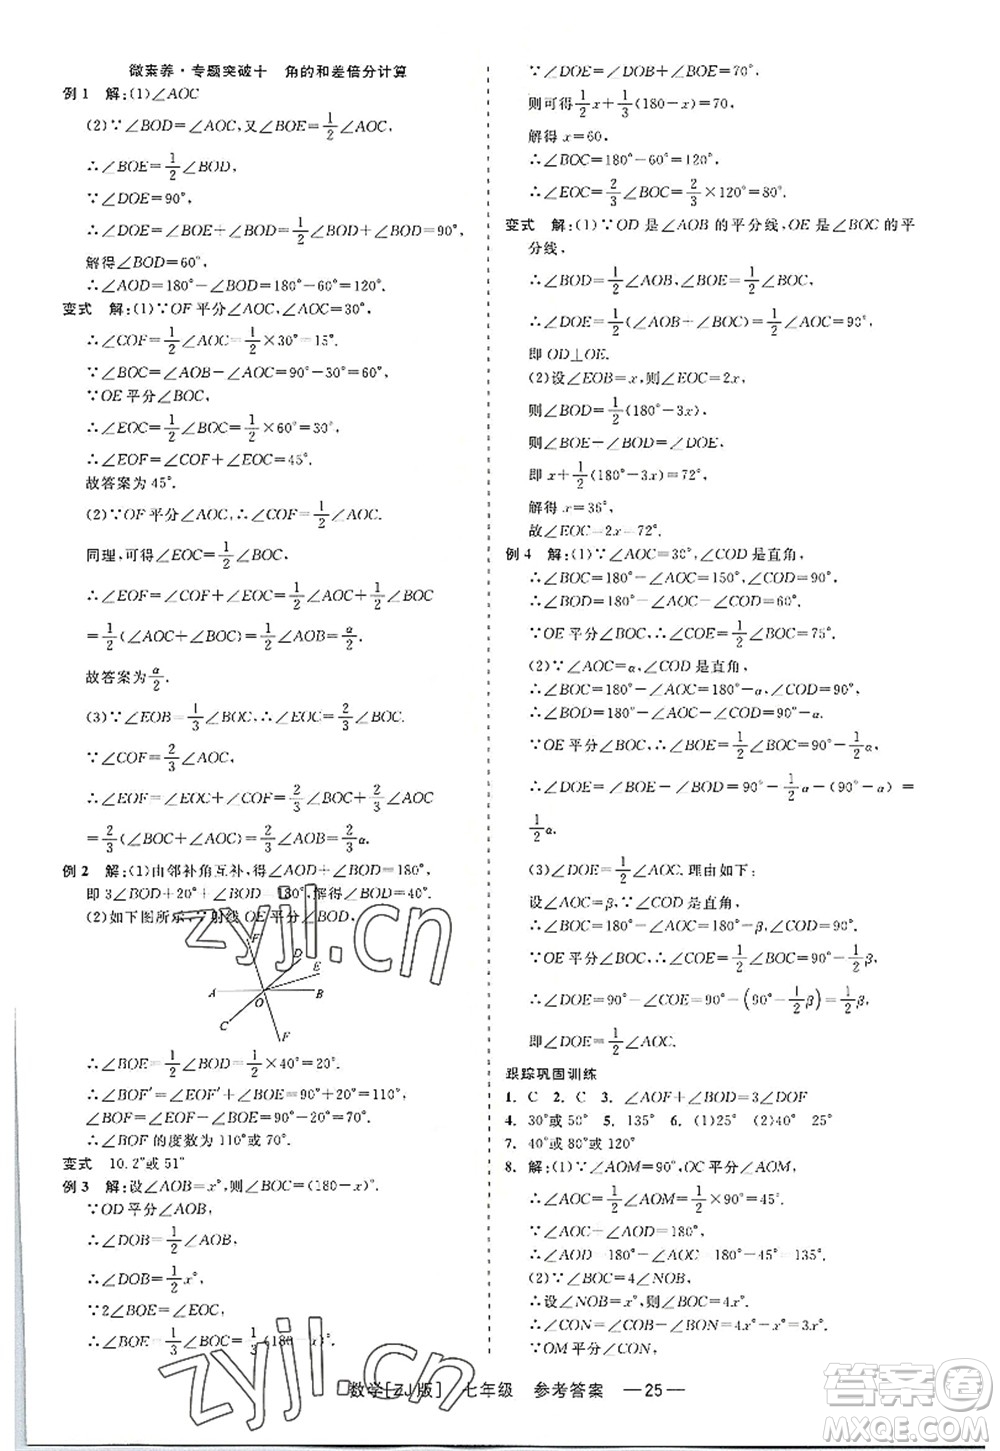 微素养·专题突破十 角的和差倍分计算
例1 解:(1)∠AOC
(2)∵∠BOD=∠AOC,又∠BOE=1/2∠AOC,
∴∠BOE=1/2∠BOD,
∵∠DOE=90°,
∴∠DOE=∠BOE+∠BOD=1/2∠BOD+∠BOD=90°,
解得∠BOD=60°,
∴∠AOD=180°-∠BOD=180°-60°=120°.
变式 解:(1)∵OF平分∠AOC,∠AOC=30°,
∴∠COF=1/2∠AOC=1/2×30°=15°.
∵∠BOC=∠AOB-∠AOC=90°-30°=60°,
∵OE平分∠BOC,
∴∠EOC=1/2∠BOC=1/2×60°=30°,
∴∠EOF=∠COF+∠EOC=45°.
故答案为45°.
(2)∵OF平分∠AOC,∴∠COF=1/2∠AOC.
同理,可得∠EOC=1/2∠BOC,
∴∠EOF=∠COF+∠EOC=1/2∠AOC+1/2∠BOC
=1/2(∠AOC+∠BOC)=1/2∠AOB=α/2.
故答案为α/2.
(3)∵∠EOB=1/3∠BOC,∴∠EOC=2/3∠BOC.
∵∠COF=2/3∠AOC,
∴∠EOF=∠EOC+∠COF=2/3∠BOC+2/3∠AOC
=2/3(∠BOC+∠AOC)=2/3∠AOB=2/3α.
例2 解:(1)由邻补角互补,得∠AOD+∠BOD=180°,
即3∠BOD+20°+∠BOD=180°,解得∠BOD=40°.
(2)如下图所示,∵射线OE平分∠BOD,
F′
D
E
A
O
B
C
F
∴∠BOE=1/2∠BOD=1/2×40°=20°.
∴∠BOF′=∠EOF′+∠BOE=90°+20°=110°,
∠BOF=∠EOF-∠BOE=90°-20°=70°,
∴∠BOF的度数为110°或70°.
变式 10.2°或51°
例3 解:设∠AOB=x°,则∠BOC=(180-x)°.
∵OD平分∠AOB,
∴∠DOB=1/2∠AOB,
∴∠DOB=1/2x°,
∵2∠BOE=∠EOC,
∴∠BOE=1/3∠BOC=1/3(180-x)°,
∵∠DOB+∠BOE=∠DOE=70°,
则可得1/2x+1/3(180-x)=70,
解得x=60,
∴∠BOC=180°-60°=120°,
∴∠EOC=2/3∠BOC=2/3×120°=80°.
变式 解:(1)∵OD是∠AOB的平分线,OE是∠BOC的平
分线,
∴∠BOD=1/2∠AOB,∠BOE=1/2∠BOC,
∴∠DOE=1/2(∠AOB+∠BOC)=1/2∠AOC=90°,
即OD⊥OE.
(2)设∠EOB=x,则∠EOC=2x,
则∠BOD=1/2(180°-3x),
∵∠BOE+∠BOD=∠DOE,
即x+1/2(180°-3x)=72°,
解得x=36°,
故∠EOC=2x=72°.
例4 解:(1)∵∠AOC=30°,∠COD是直角,
∴∠BOC=180°-∠AOC=150°,∠COD=90°,
∴∠BOD=180°-∠AOC-∠COD=60°.
∵OE平分∠BOC,∴∠COE=1/2∠BOC=75°.
(2)∵∠AOC=α,∠COD是直角,
∴∠BOC=180°-∠AOC=180°-α,∠COD=90°,
∴∠BOD=180°-∠AOC-∠COD=90°-α.
∵OE平分∠BOC,∴∠BOE=1/2∠BOC=90°-1/2α,
∴∠DOE=∠BOE-∠BOD=90°-1/2α-(90°-α)=
1/2α.
(3)∠DOE=1/2∠AOC.理由如下:
设∠AOC=β,∵∠COD=90°,
∴∠BOC=180°-∠AOC=180°-β,∠COD=90°,
∵OE平分∠BOC,∴∠COE=1/2∠BOC=90°-1/2β,
∴∠DOE=∠COD-∠COE=90°-(90°-1/2β)=1/2β,
即∠DOE=1/2∠AOC.
跟踪巩固训练
1. C 2. C 3. ∠AOF+∠BOD=3∠DOF
4. 30°或50° 5. 135° 6. (1)25° (2)40° 25°
7. 40°或80°或120°
8. 解:(1)∵∠AOM=90°,OC平分∠AOM,
∴∠AOC=1/2∠AOM=1/2×90°=45°.
∵∠AOC+∠AOD=180°,
∴∠AOD=180°-∠AOC=180°-45°=135°.
(2)∵∠BOC=4∠NOB,
∴设∠NOB=x°,∠BOC=4x°,
∴∠CON=∠BOC-∠BON=4x°-x°=3x°.
∵OM平分∠CON,
数学[ZJ版] 七年级 参考答案 —25—
zyjl.cn
zyjl.cn
作业精灵
MXQE.COM